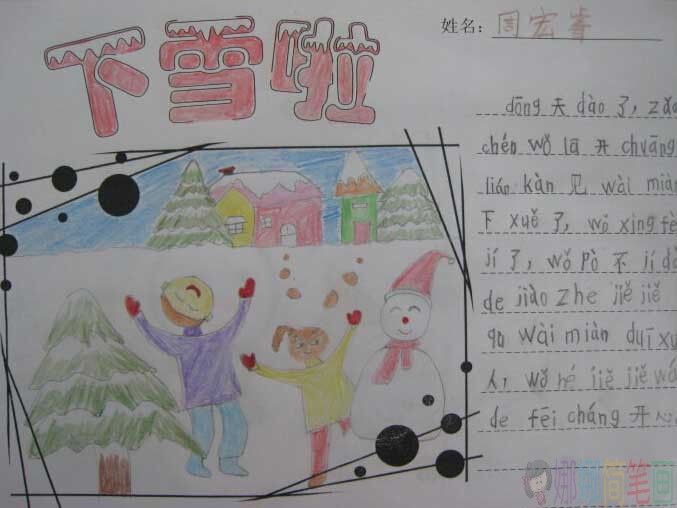 下雪啦
姓名：周宏睿
dōng 天 dào 了，zǎo
chén wǒ lā 开 chuāng
lián kàn 见 wài miàn
下 xuě 了，wǒ xīng fèn
jí 了，wǒ pò 不 jí dà
de jiào zhe jiě jiě
qu wài miàn duī xu
人，wǒ hé jiě jiě wá
de fēi cháng 开 心
娜娜简笔画